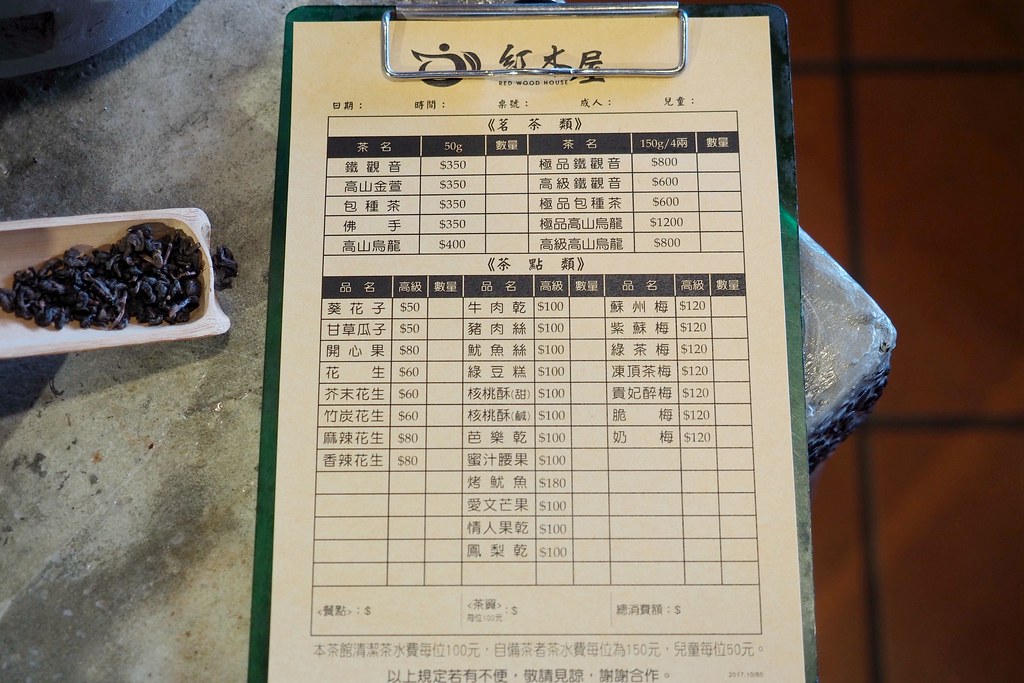 紅木屋
RED WOOD HOUSE
日期： 時間： 桌號： 成人： 兒童：
《茗茶類》
茶名 50g 數量 茶名 150g/4兩 數量
鐵觀音 $350 極品鐵觀音 $800
高山金萱 $350 高級鐵觀音 $600
包種茶 $350 極品包種茶 $600
佛手 $350 極品高山烏龍 $1200
高山烏龍 $400 高級高山烏龍 $800
《茶點類》
品名 高級 數量 品名 高級 數量 品名 高級 數量
葵花子 $50 牛肉乾 $100 蘇州梅 $120
甘草瓜子 $50 豬肉絲 $100 紫蘇梅 $120
開心果 $80 魷魚絲 $100 綠茶梅 $120
花生 $60 綠豆糕 $100 凍頂茶梅 $120
芥末花生 $60 核桃酥(甜) $100 貴妃醉梅 $120
竹炭花生 $60 核桃酥(鹹) $100 脆梅 $120
麻辣花生 $80 芭樂乾 $100 奶梅 $120
香辣花生 $80 蜜汁腰果 $100
烤魷魚 $180
愛文芒果 $100
情人果乾 $100
鳳梨乾 $100
<餐點>：$ <茶資>：$ 總消費額：$
每位100元
本茶館清潔茶水費每位100元，自備茶者茶水費每位為150元，兒童每位50元。
以上規定若有不便，敬請見諒，謝謝合作。